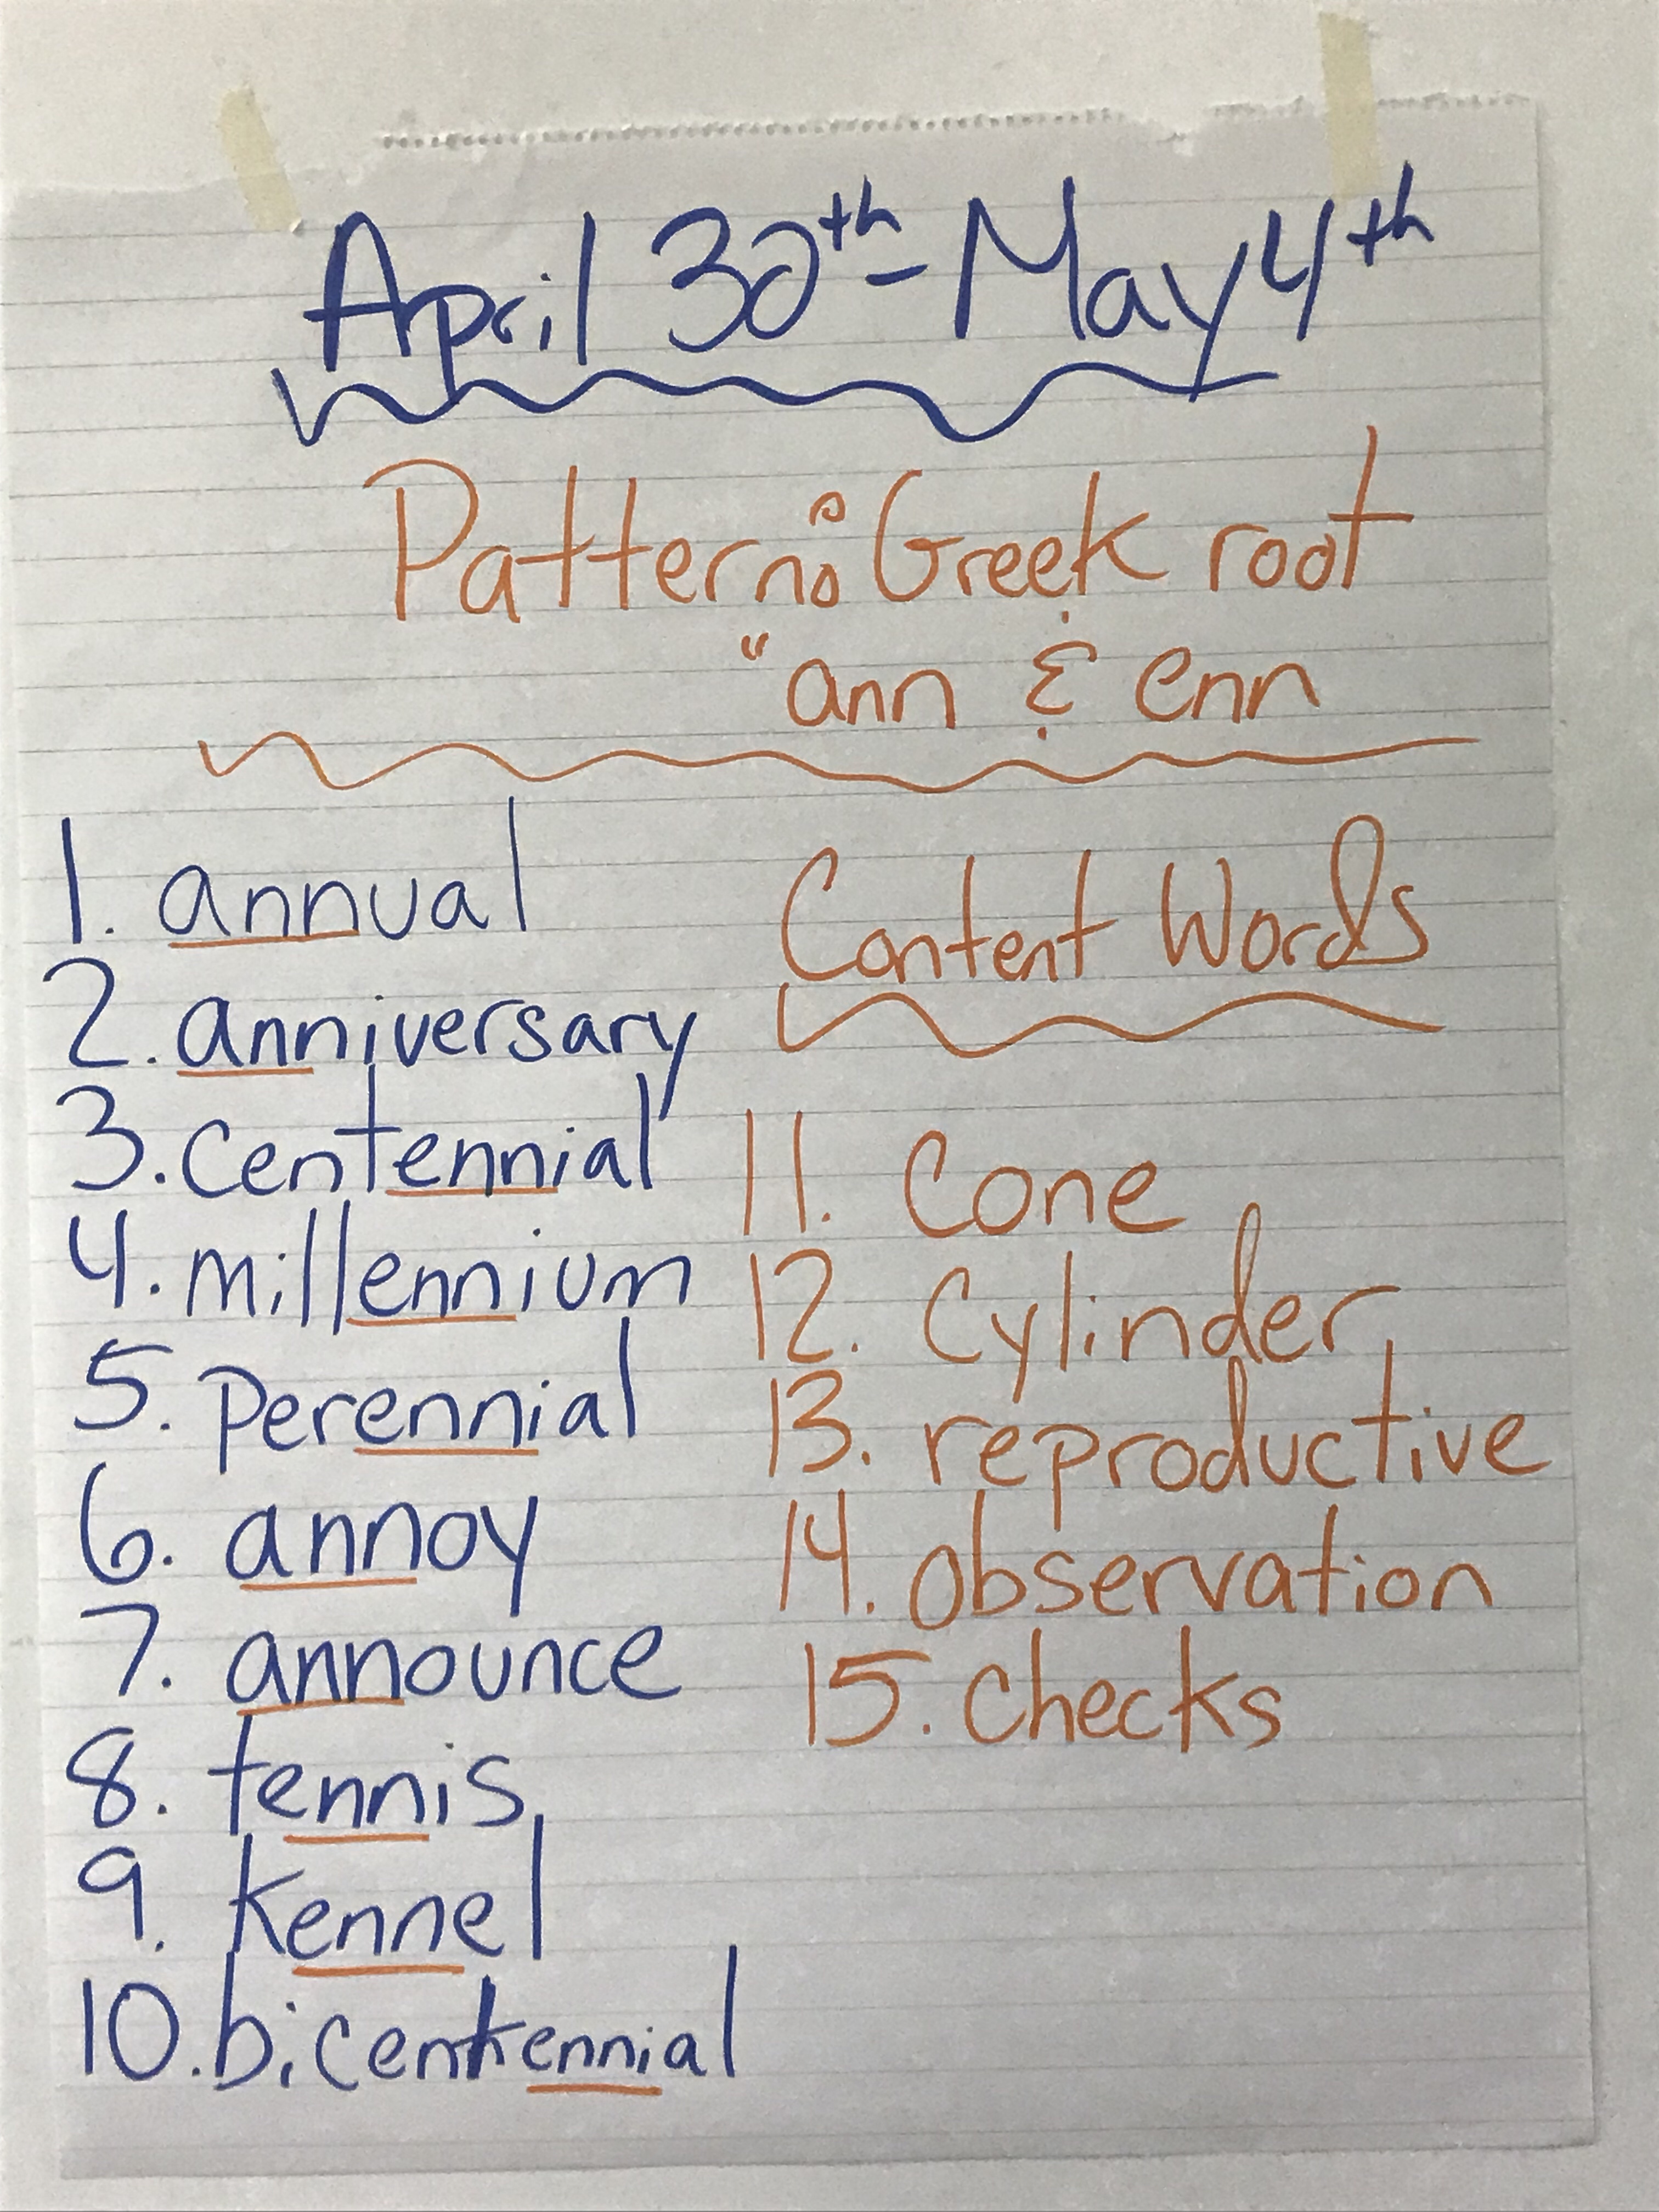 April 30th - May 4th
Pattern: Greek root
"ann & enn
1. annual
2. anniversary
3. centennial
4. millennium
5. perennial
6. annoy
7. announce
8. tennis
9. kennel
10. bicentennial
Content Words
11. Cone
12. Cylinder
13. reproductive
14. observation
15. checks